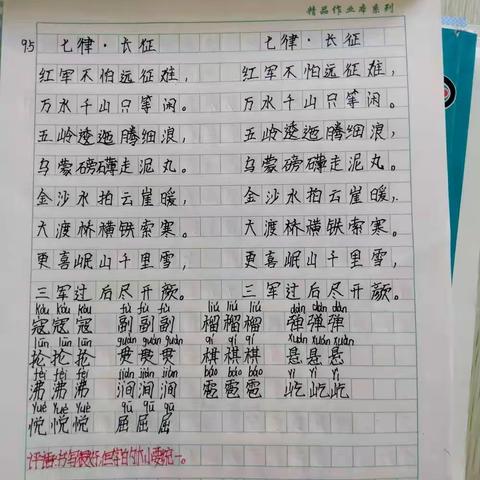 精品作业本系列
95 七律·长征 七律·长征
红军不怕远征难， 红军不怕远征难，
万水千山只等闲。 万水千山只等闲。
五岭逶迤腾细浪， 五岭逶迤腾细浪，
乌蒙磅礴走泥丸。 乌蒙磅礴走泥丸。
金沙水拍云崖暖， 金沙水拍云崖暖，
大渡桥横铁索寒。 大渡桥横铁索寒。
更喜岷山千里雪， 更喜岷山千里雪，
三军过后尽开颜。 三军过后尽开颜。
kòu kòu kòu fù fù fù liú liú liú dàn dàn dàn
寇寇寇 副副副 榴榴榴 弹弹弹
lūn lūn lūn guàn guàn guàn qí qí qí xuán xuán xuán
抡抡抡 贯贯贯 棋棋棋 悬悬悬
fèi fèi fèi jiàn jiàn jiàn báo báo báo yì yì yì
沸沸沸 涧涧涧 雹雹雹 屹屹屹
yuè yuè yuè qū qū qū
悦悦悦 屈屈屈
评语：书写很好，但的大小要统一。